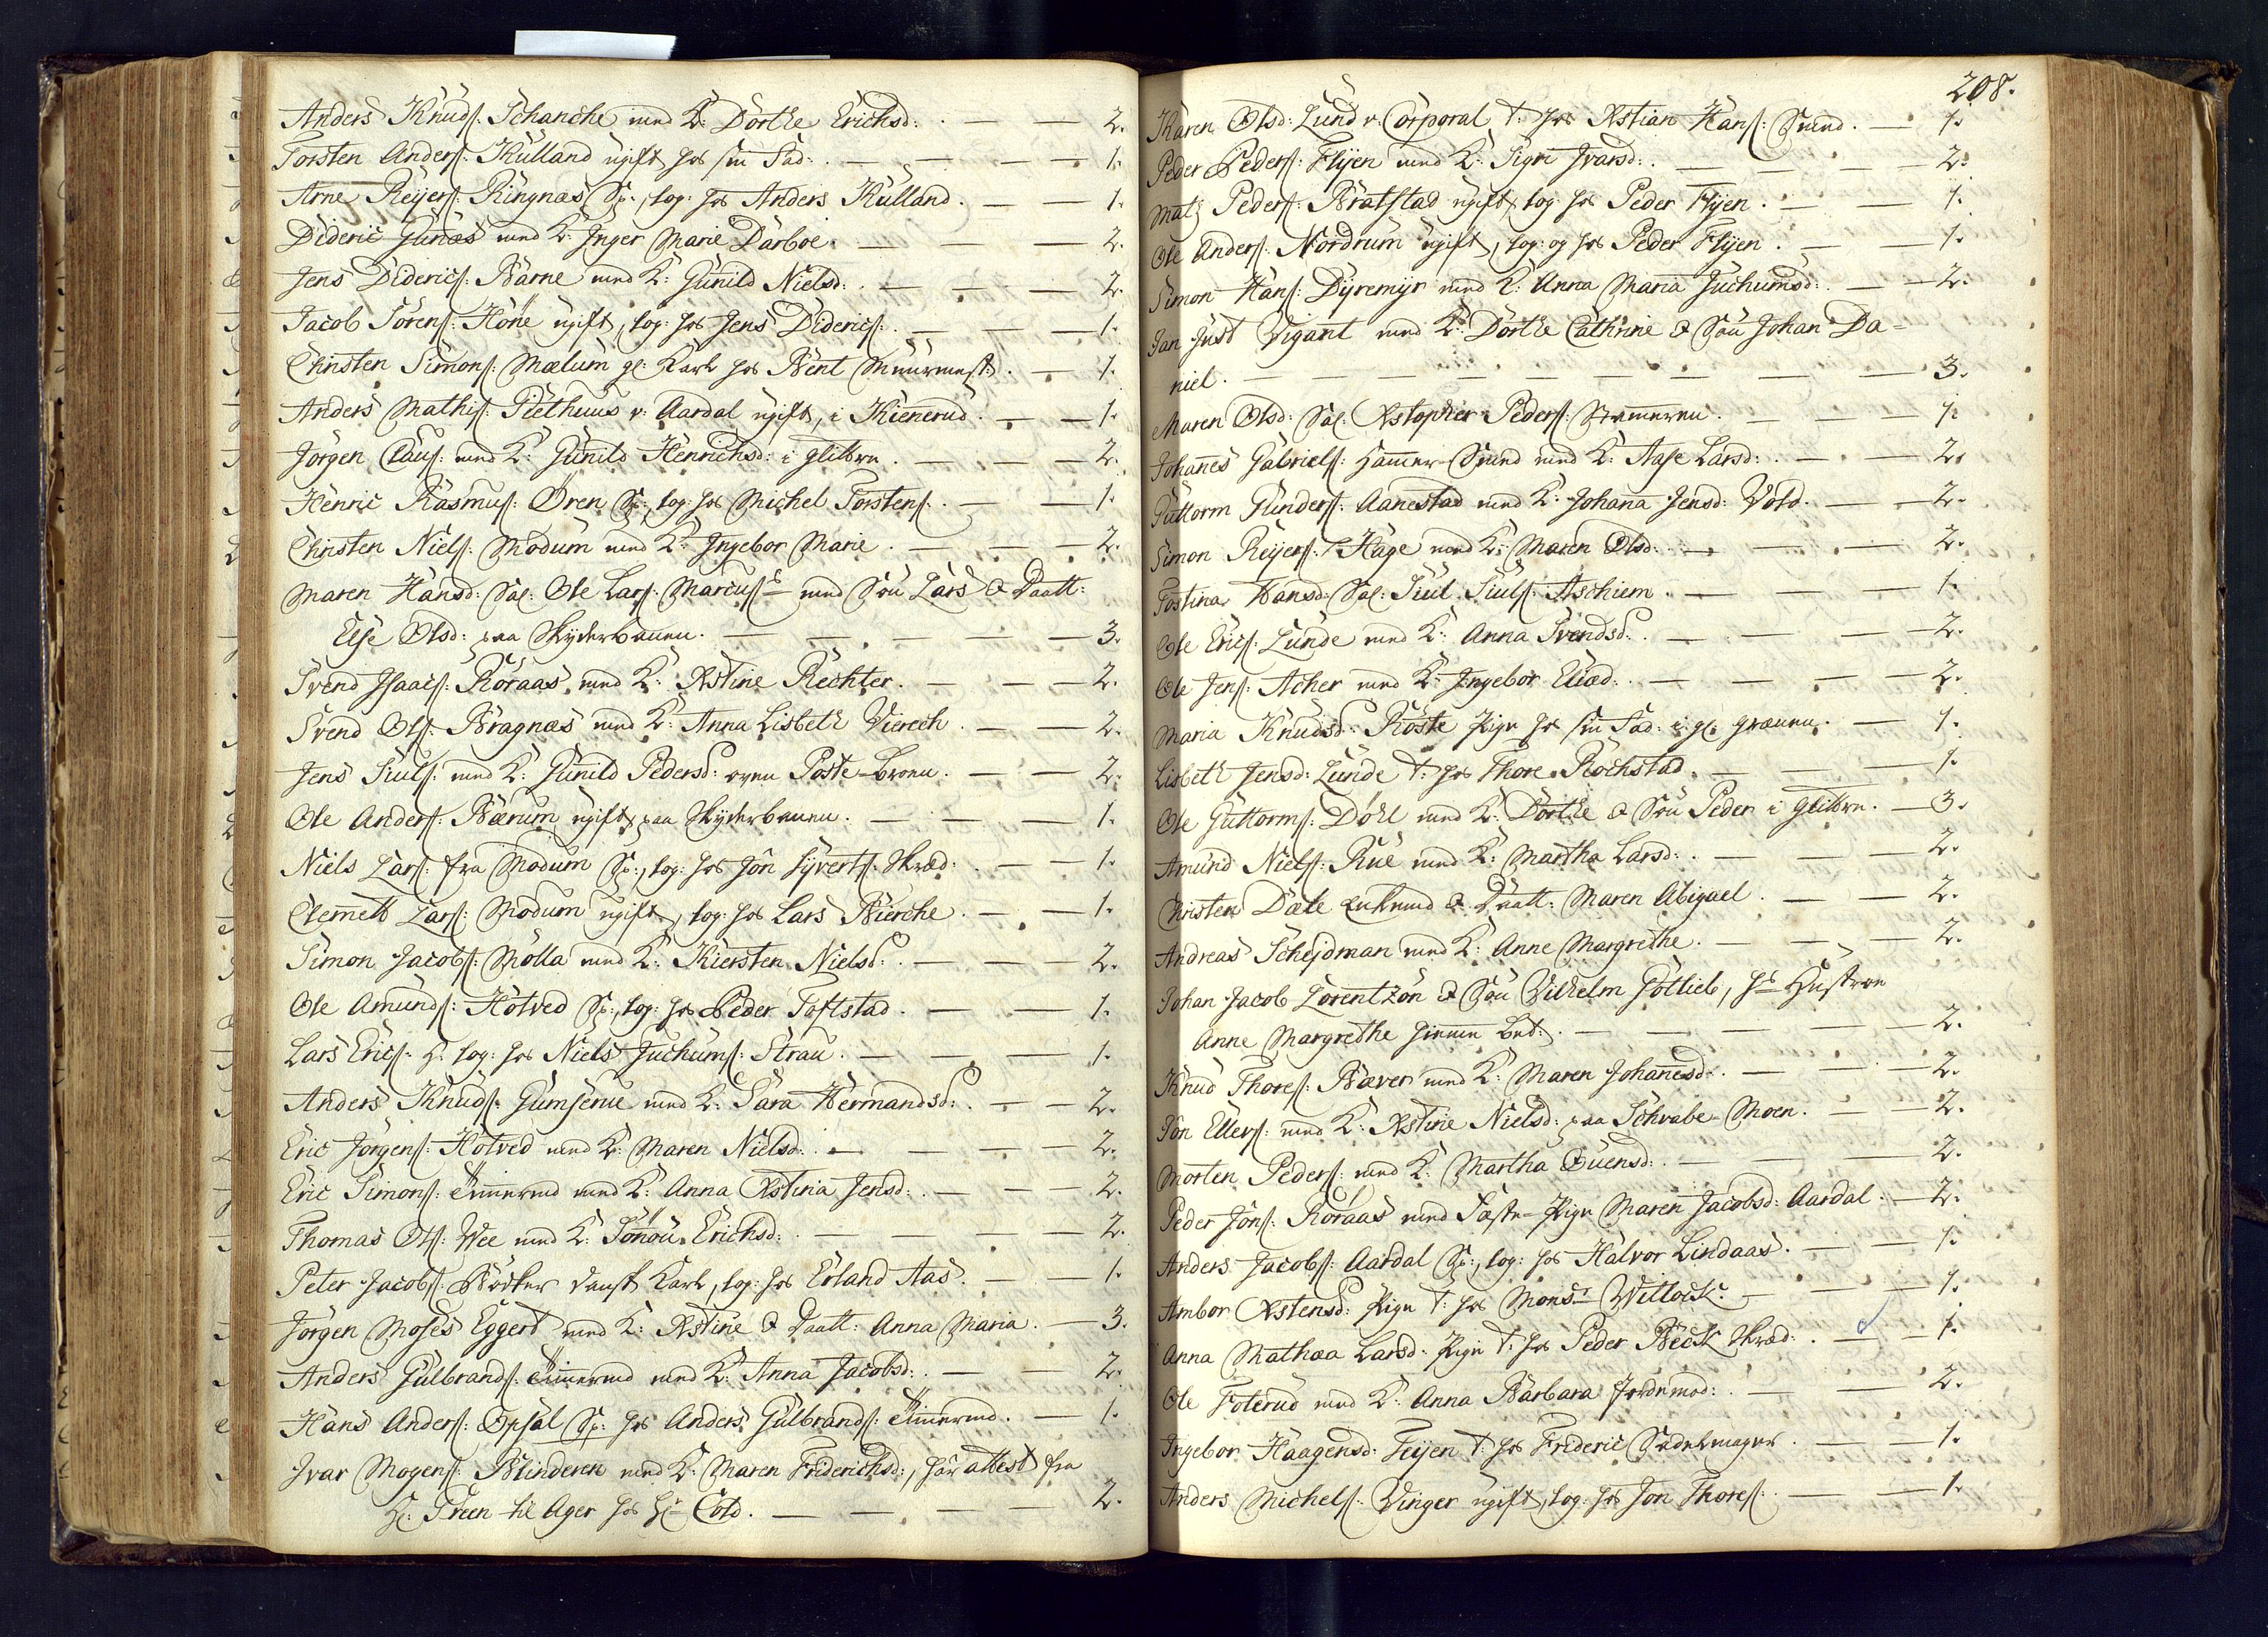 Anders Knuds: Schanche med K: Dorthe Erichsd: — — 2.
Torsten Anders: Kulland ugift hos sin Fad: — — — 1.
Arne Reyers: Ringnæs log: hos Anders Kulland. — — 1.
Dideric Gunæs med K: Inger Marie Darboe. — — 2.
Jens Diderics: Barne med K: Gunild Nielsd: — — — 2.
Jacob Sörens: Höne ugift, log: hos Jens Diderics: — — — 1.
Christen Simons: Mælum gl: Karl hos Bent Muurmest: — 1.
Anders Mathis: Peethuus v: Aardal ugift, i Kiennerud. — — 1.
Jörgen Claus: med K: Gunild Henrichsd: i Glittre. — — 2.
Henric Rasmus: Ören log: hos Michel Torstens: — — 1.
Christen Niels: Modum med K: Ingebor Marie. — — — 2.
Maren Hansd: Sal: Ole Lars: Marcus: med Sön Lars & Daatt:
Else Olsd: paa Skyderbanen. — — — — 3.
Svend Isaacs: Röraas med K: Kstine Rechter. — — — 2.
Svend Ols: Bragnæs med K: Anna Lisbeth Vierech — — 2.
Jens Siuls: med K: Gunild Pedersd: oven Poste-Broen. — — 2.
Ole Anders: Bærum ugift paa Skyderbanen. — — — 1.
Niels Lars: fra Modum log: hos Jon Syverts: Skræd: — — 1.
Clemmett Lars: Modum ugift, log: hos Lars Bierche. — — 1.
Simon Jacobs: Mölla med K: Kiersten Nielsd: — — 2.
Ole Amunds: Hotved log: hos Peder Toftstad. — — 1.
Lars Erics: log: hos Niels Juchums: Strau. — — — 1.
Anders Knuds: Gumserue med K: Sara Hermandsd: — — 2.
Eric Jörgens: Hotved med K: Maren Nielsd: — — — 2.
Eric Simons: Timmermd med K: Anna Kstina Jensd: — — 2.
Thomas Ols: Wee med K: Sönöu Erichsd: — — — 2.
Peter Jacobs: Bödker dansk Karl, log: hos Erland Aas. — — 1.
Jörgen Moses Eggert med K: Kstine & Daatt: Anna Maria. — 3.
Anders Gulbrands: Timmermd med K: Anna Jacobsd: — — 2.
Hans Anders: Opsal hos Anders Gulbrands: Timmermd. — 1.
Ivar Mogens: Blinderen med K: Maren Friderichsd:, har attest fra
Hr: Green til Ager hos Hr Cold. — — — — 2.
208.
Karen Olsd: Lund v. Corporal t: hos Kstian Hans: Smed. — 1.
Peder Peders: Flyen med K: Sigri Ivarsd: — — — 2.
Mats Peders: Bratstad ugift, log: hos Peder Flyen. — — 1.
Ole Anders: Nordrum ugift, log: og hos Peder Flyen. — — 1.
Simon Hans: Dyremyr med K: Anna Maria Juchumsd: — — 2.
Jan Just Vigant med K: Dorthe Cathrine & Sön Johan Da=
niel. — — — — — 3.
Maren Olsd: Sal: Kstopher Peders: — — 1.
Johannes Gabriels: Hammer Smed med K: Aase Larsd: — — 2.
Guttorm Gunders: Aanestad med K: Johanna Jensd: Vold. — — 2.
Simon Reyers: Hage med K: Maren Olsd: — — — 2.
Tostina Hansd: Sal: Siul Siuls: Aschiem. — — — 1.
Ole Erics: Lunde med K: Anna Svendsd: — — — 2.
Ole Jens: Acher med K: Ingebor Eliæd: — — — 2.
Maria Knudsd: Röste Pige hos sin Fad: i gl: — 1.
Lisbeth Jensd: Lunde t: hos Thore Rochstad. — — 1.
Ole Guttorms: Döhl med K: Dorthe & Sön Peder i Glittre. — 3.
Amund Niels: Rue med K: Martha Larsd: — — — 2.
Christen Dæle Enkemd & Daatt: Maren Abigael. — — 2.
Andreas Schejdman med K: Anne Margrethe. — — — 2.
Johan Jacob Lorentzön & Sön Vilhelm Gotlieb, Hustroe
Anne Margrethe — — — 2.
Knud Thores: Bæver med K: Maren Johannesd: — — — 2.
Jon Ellevs: med K: Kstine Nielsd: paa Schvabe-Moen. — — 2.
Morten Peders: med K: Martha Ouensd: — — — 2.
Peder Jons: Röraas med Fæste-Pige Maren Jacobsd: Aardal. — 2.
Anders Jacobs: Aardal log: hos Halvor Lindaas. — — 1.
Ambor Kstensd: Pige t: hos Monsr Willock. — — 1.
Anna Mathæa Larsd: Pige t: hos Peder Beck Skræd: — — 1.
Ole Foterud med K: Anna Barbara Jordemod: — — 2.
Ingebor Haagensd: Feyen t: hos Frideric Sadelmager. — — 1.
Anders Michels: Vinger ugift, log: hos Jon Thores: — — 1.